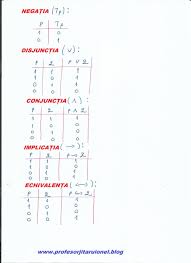 NEGAȚIA (⌉p):
p ⌉p
1 0
0 1
DISJUNCȚIA (∪):
p q p ∪ q
1 1 1
1 0 1
0 1 1
0 0 0
CONJUNCȚIA (∧):
p q p ∧ q
1 1 1
1 0 0
0 1 0
0 0 0
IMPLICAȚIA (→):
p q p → q
1 1 1
1 0 0
0 1 1
0 0 1
ECHIVALENȚA (↔):
p q p ↔ q
1 1 1
1 0 0
0 1 0
0 0 1
www.profesorjitaruionel.blog